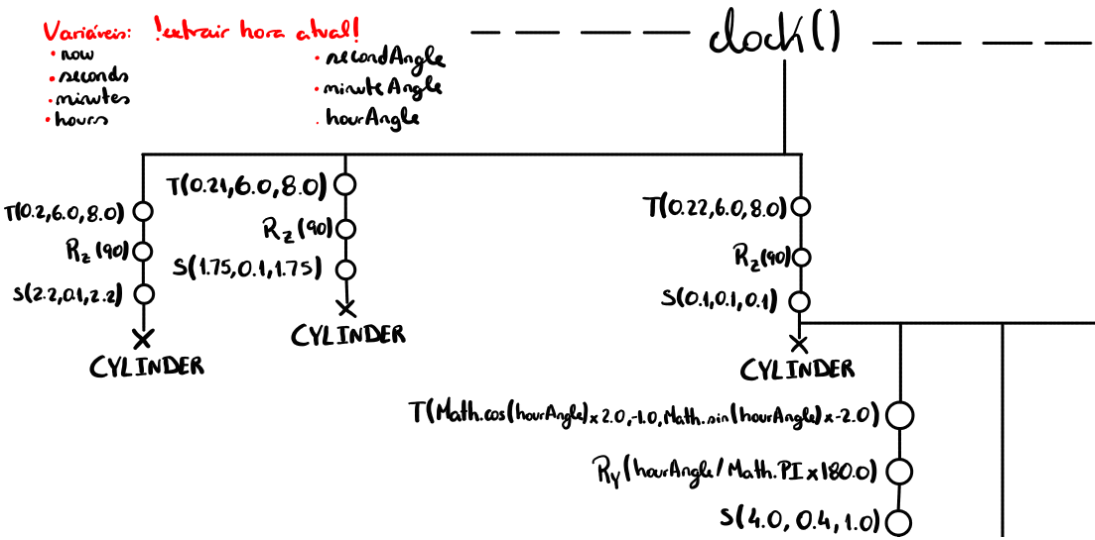 clock()
Variáveis: !extrair hora atual!
• now
• seconds
• minutes
• hours
• secondAngle
• minuteAngle
. hourAngle
T(0.2,6.0,8.0)
Rz(90)
S(2.2,0.1,2.2)
CYLINDER
T(0.21,6.0,8.0)
Rz(90)
S(1.75,0.1,1.75)
CYLINDER
T(0.22,6.0,8.0)
Rz(90)
S(0.1,0.1,0.1)
CYLINDER
T(Math.cos(hourAngle)x2.0,-1.0,Math.sin(hourAngle)x-2.0)
RY(hourAngle/Math.PIx180.0)
S(4.0, 0.4, 1.0)